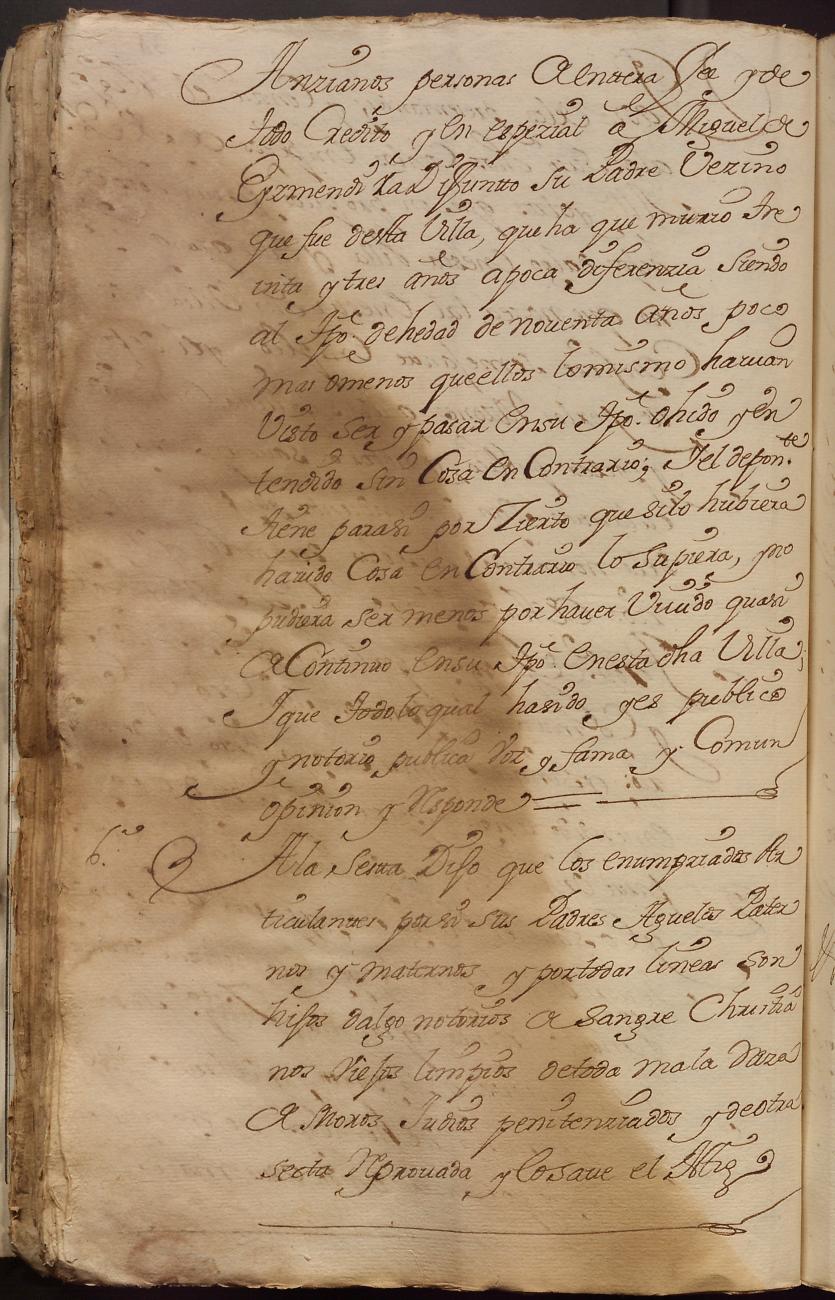 Anzianos personas de entera fee y de
todo Credito y en espezial a Miguel de
Gamendi ya Difuntto su Padre Vezino
que fue desta Villa, que ha que murio tre
inta y tres años a poca diferenzia siendo
al tpo. de hedad de noventa años poco
mas omenos que ellos lo mismo havian
Visto ser y pasar en su tpo. ohido y en
tendido sin Cosa en Contrario; I el depon.te
tiene parasi por Zierto que silo hubiera
havido Cosa en Contrario lo supiera, y no
pudiera ser menos por haver Viuido quasi
de Continuo en su tpo. en esta dha Villa;
I que todo lo qual hasido y es publico
y notorio publica Voz y fama y Comun
opinion y Responde
6.a A la Sexta Dijo que los enumpziados Ar
ticulantes por si sus Padres Aguelos Pater
nos y maternos y por todas lineas son
hijos dalgo notorios de sangre Christia
nos Viejos limpios de toda mala Raza
de Moros Judios penitenziados y de otra
secta Reprouada y lo saue el testigo